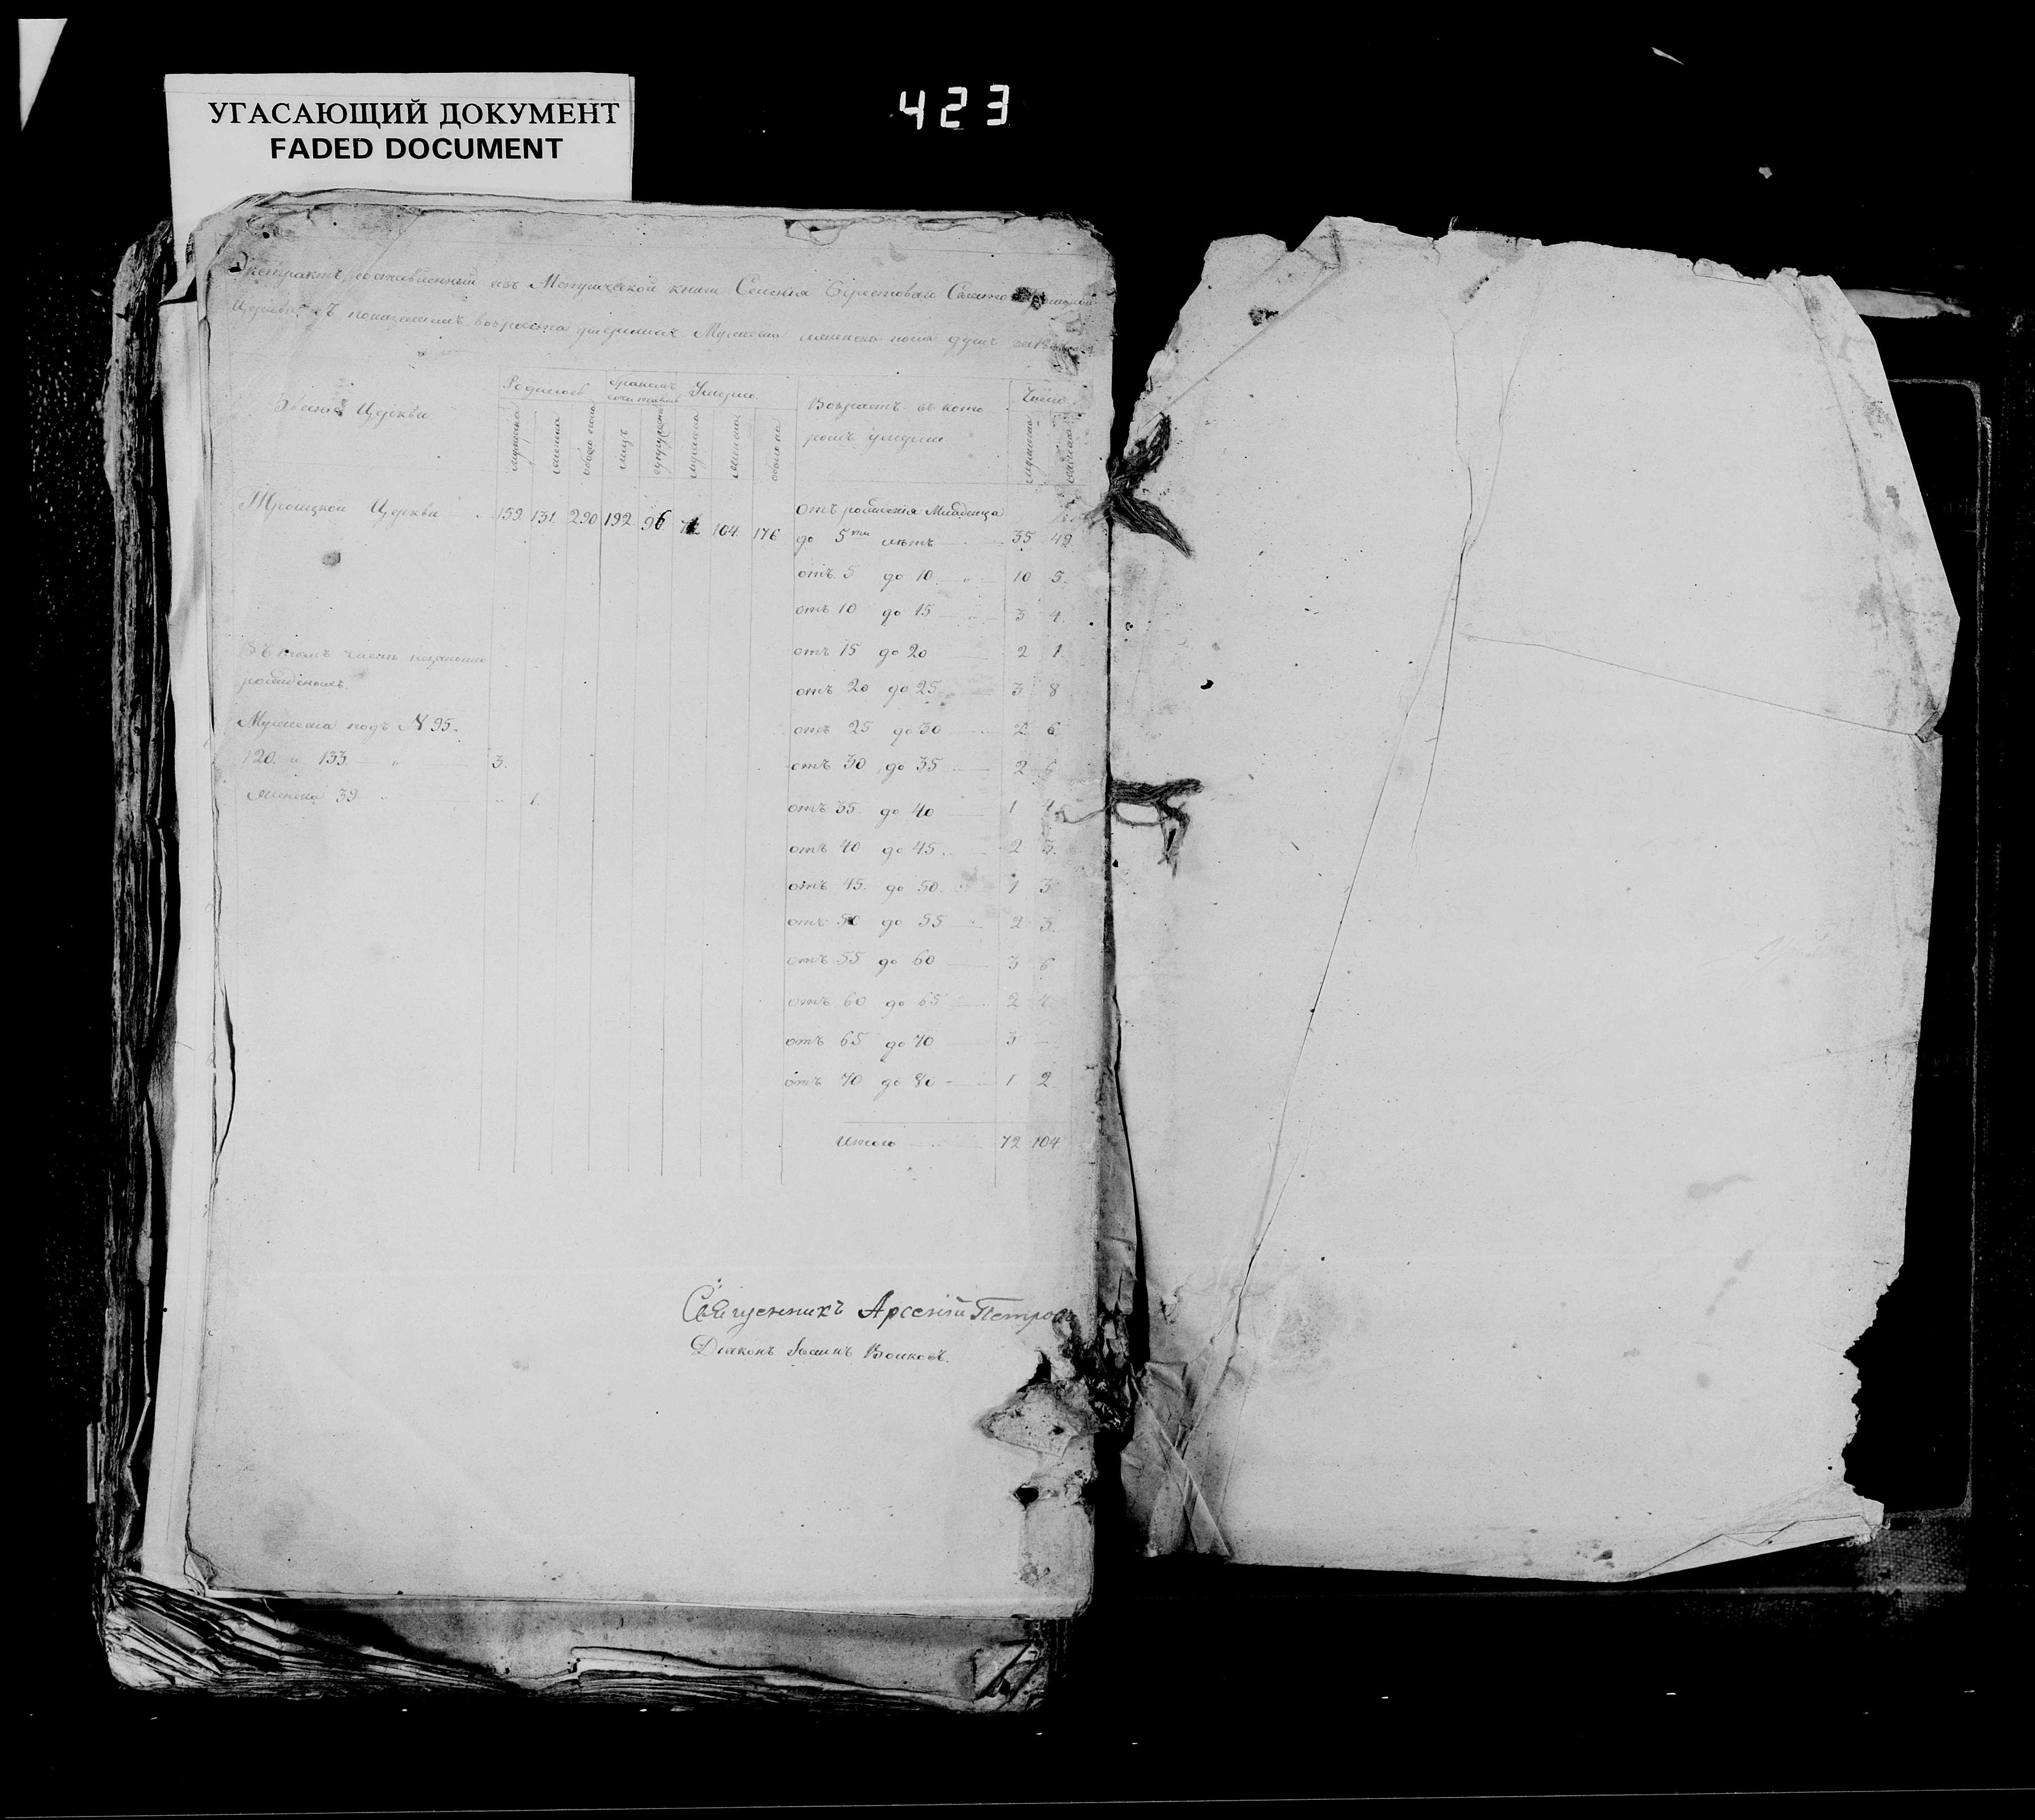 УГАСАЮЩИЙ ДОКУМЕНТ
FADED DOCUMENT
423
Экстрактъ, составленный изъ Метрической книги Селенія Берестоваго Свято
Церкви съ показаніемъ возраста умершихъ Мужеска женска пола душъ
Званіе Церкви
Родилось
бракомъ сочетанов
Умерло.
Возрастъ въ кото
ромъ умерли
Число
мужеска
женска
обоего пола
лицъ
супружествъ
мужеска
женска
обоего по
мужеска
женска
Троицкой Церкви 159. 131. 290 192. 96 72 104. 176
отъ рожденія Младенца
до 5ти лѣтъ 35 49
отъ 5 до 10 " 10 5.
отъ 10 до 15 3 4.
отъ 15 до 20 2 1
отъ 20 до 25 3 8
отъ 25 до 30 2 6
отъ 30 до 35 2 6
отъ 35 до 40 1 4
отъ 40 до 45. 2 3.
отъ 45. до 50. 1 3
отъ 50 до 55 2 3.
отъ 55 до 60 3 6
отъ 60 до 65 2 4.
отъ 65 до 70 3
отъ 70 до 80 1 2
Итого 72 104
Въ томъ числѣ незаконно
рожденныхъ.
Мужеска подъ N 95.
120. и 133. " 3.
женска 39 " 1.
Священникъ Арсеній Петровъ
Діаконъ Іоаннъ Волковъ.